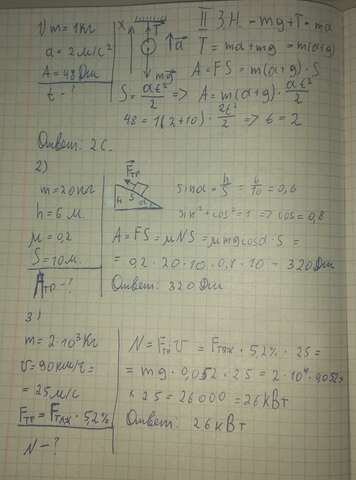 V m = 1кг
a = 2 м/с²
A = 48 Дж
t - ?
x T
a
mg
II З.Н. - mg + T = ma
T = ma + mg = m(a+g)
A = FS = m(a+g)·S
S = at²/2 => A = m(a+g)·at²/2
48 = 1(2+10)·2t²/2 => t = 2
Ответ: 2 с.
2)
m = 20 кг
h = 6 м.
μ = 0,2
S = 10 м.
Aтр - ?
Fтр
h S α
sinα = h/S = 6/10 = 0,6
sin² + cos² = 1 => cos = 0,8
A = FS = μNS = μmgcosα·S =
= 0,2·20·10·0,8·10 = 320 Дж
Ответ: 320 Дж
3)
m = 2·10³ кг
v = 90 км/ч =
= 25 м/с
Fтр = Fтяж·5,2%
N - ?
N = Fтр v = Fтяж·5,2%·25 =
= mg·0,052·25 = 2·10⁴·0,052
× 25 = 26000 = 26 кВт
Ответ: 26 кВт